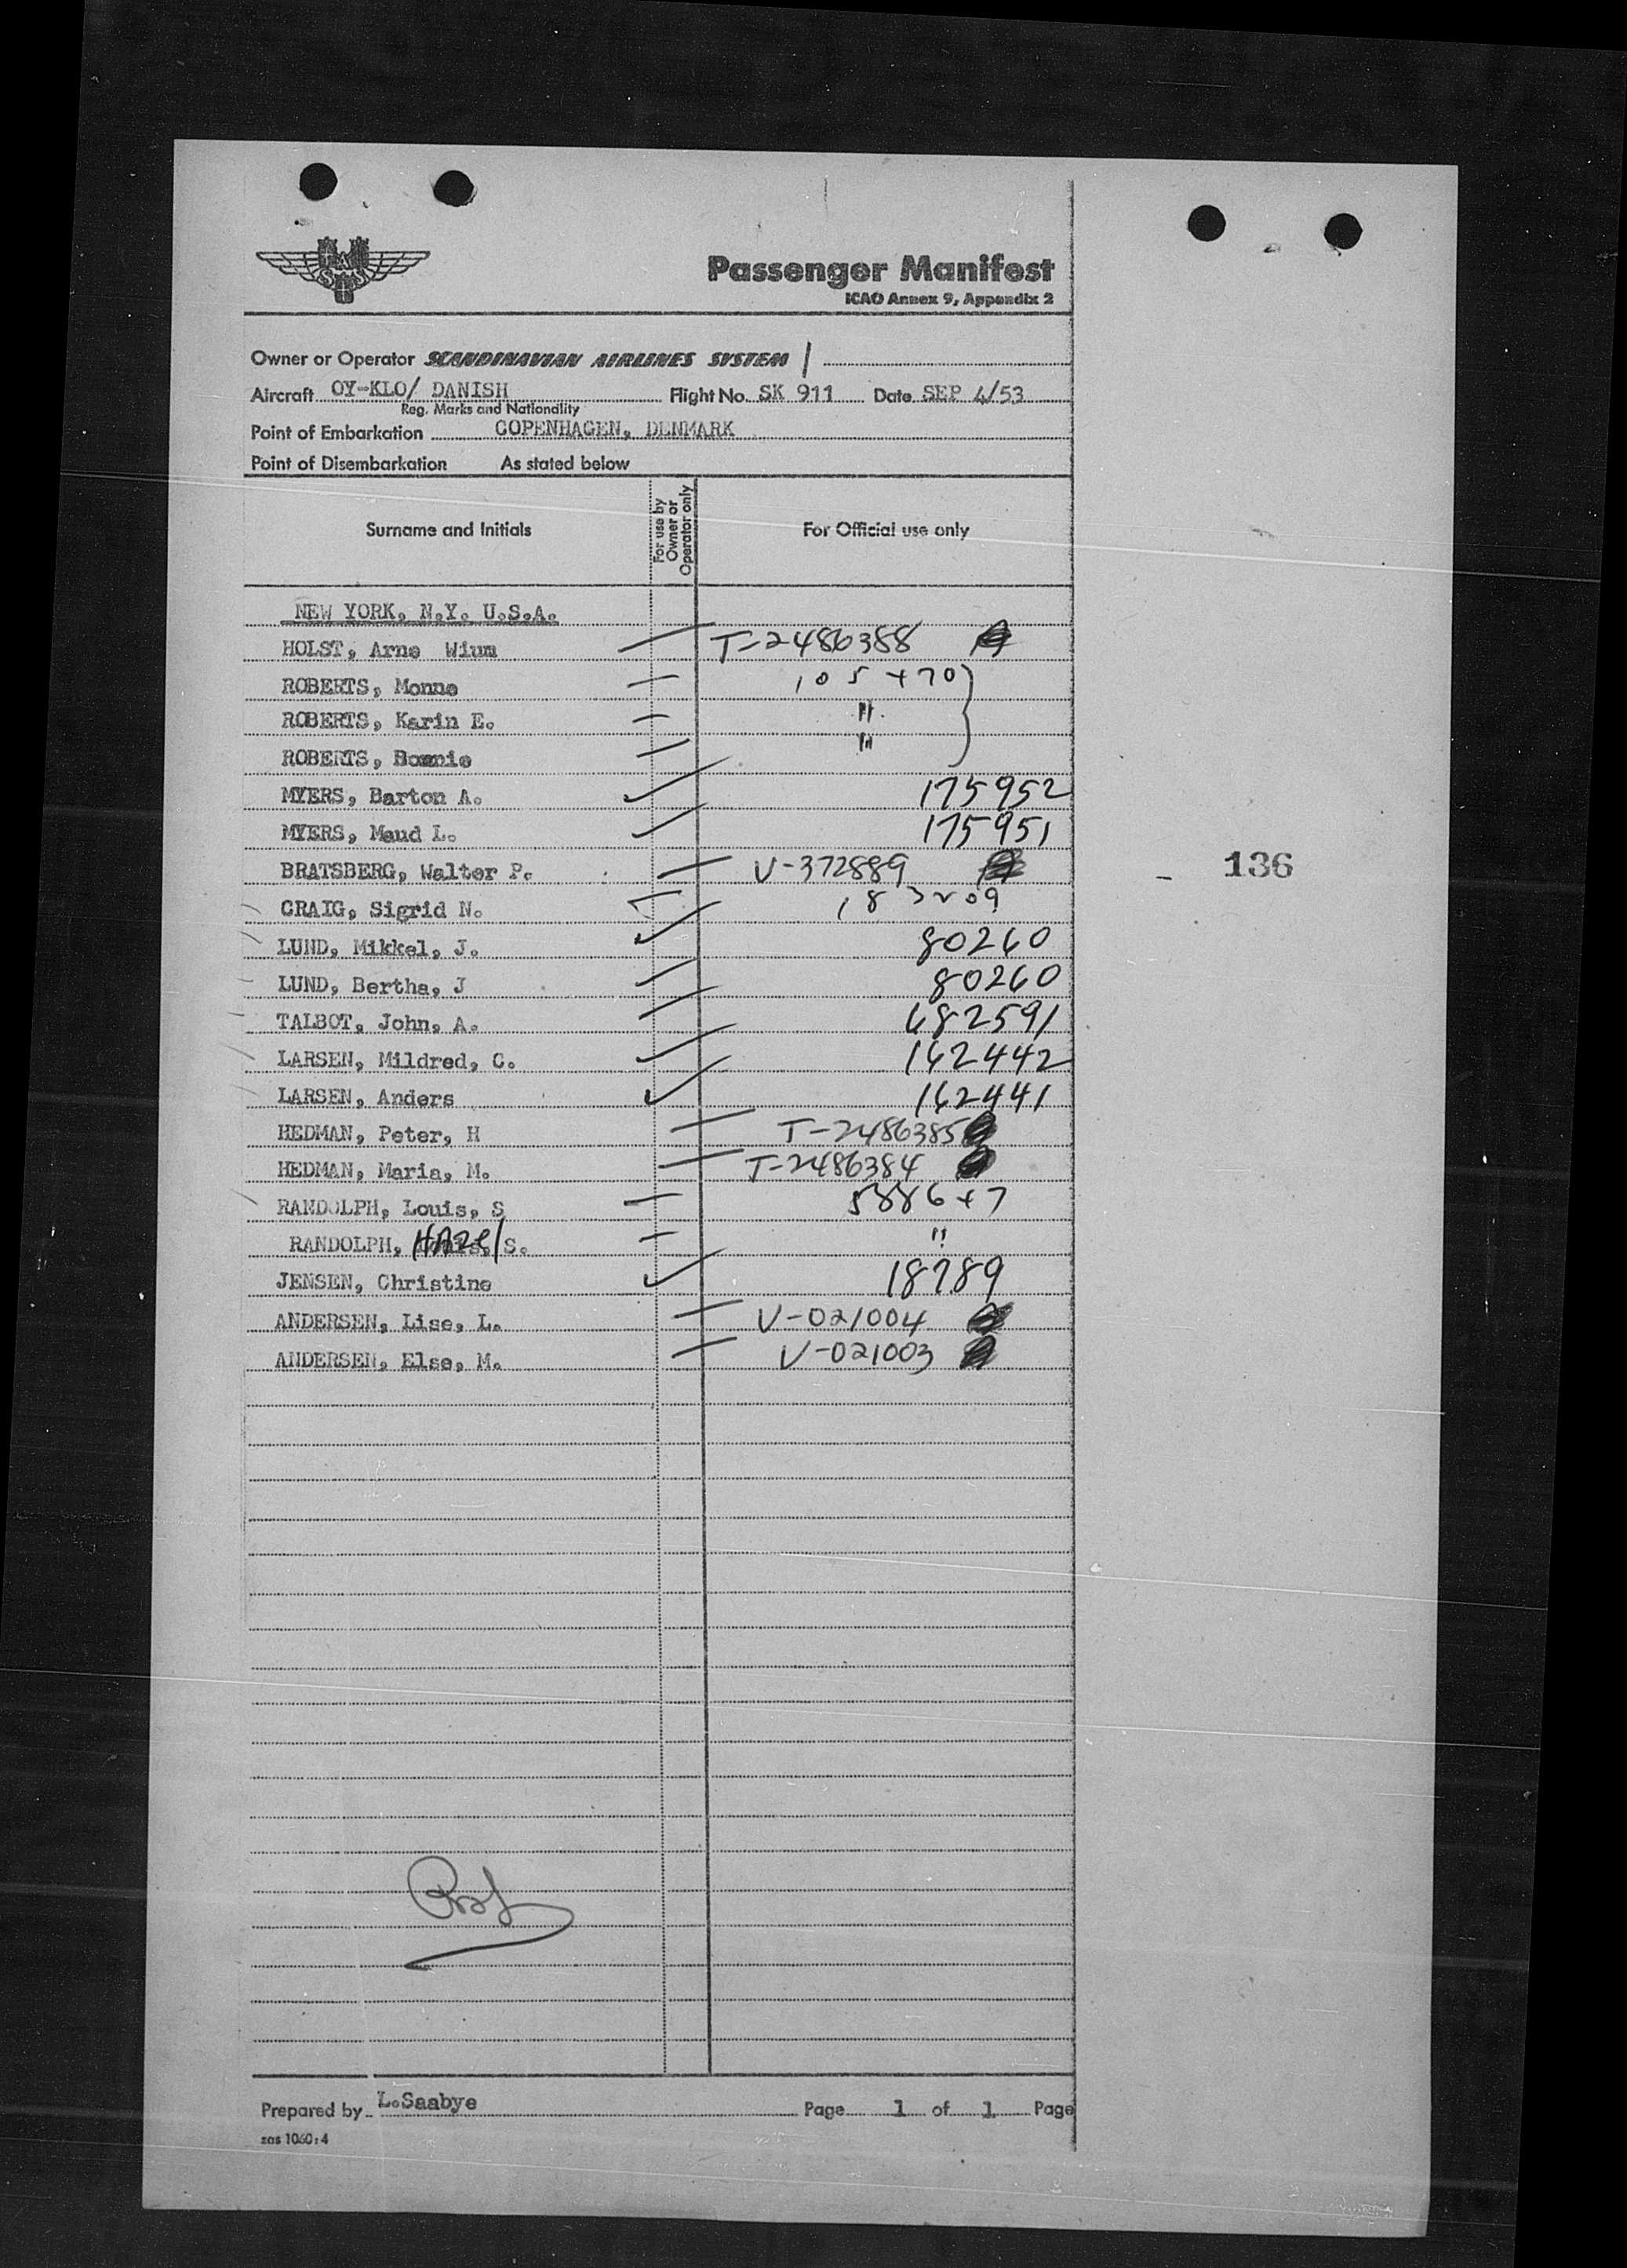 SAS
Passenger Manifest
ICAO Annex 9, Appendix 2
Owner or Operator SCANDINAVIAN AIRLINES SYSTEM
Aircraft OY-KLO/ DANISH Flight No. SK 911 Date SEP 4/53
Reg. Marks and Nationality
Point of Embarkation COPENHAGEN, DENMARK
Point of Disembarkation As stated below
Surname and Initials For use by Owner or Operator only For Official use only
NEW YORK, N.Y. U.S.A.
HOLST, Arne Wium T-2486388
ROBERTS, Monne 105+70
ROBERTS, Karin E. "
ROBERTS, Bonnie "
MYERS, Barton A. 175952
MYERS, Maud L. 175951
BRATSBERG, Walter P. V-372889
136
CRAIG, Sigrid N. 183209
LUND, Mikkel, J. 80260
LUND, Bertha, J 80260
TALBOT, John, A. 682591
LARSEN, Mildred, C. 162442
LARSEN, Anders 162441
HEDMAN, Peter, H T-2486385
HEDMAN, Maria, M. T-2486384
RANDOLPH, Louis, S 5886+7
RANDOLPH, HAZel S. "
JENSEN, Christine 18789
ANDERSEN, Lise, L. V-021004
ANDERSEN, Else, M. V-021003
Prepared by L.Saabye Page 1 of 1 Page
sas 1060:4